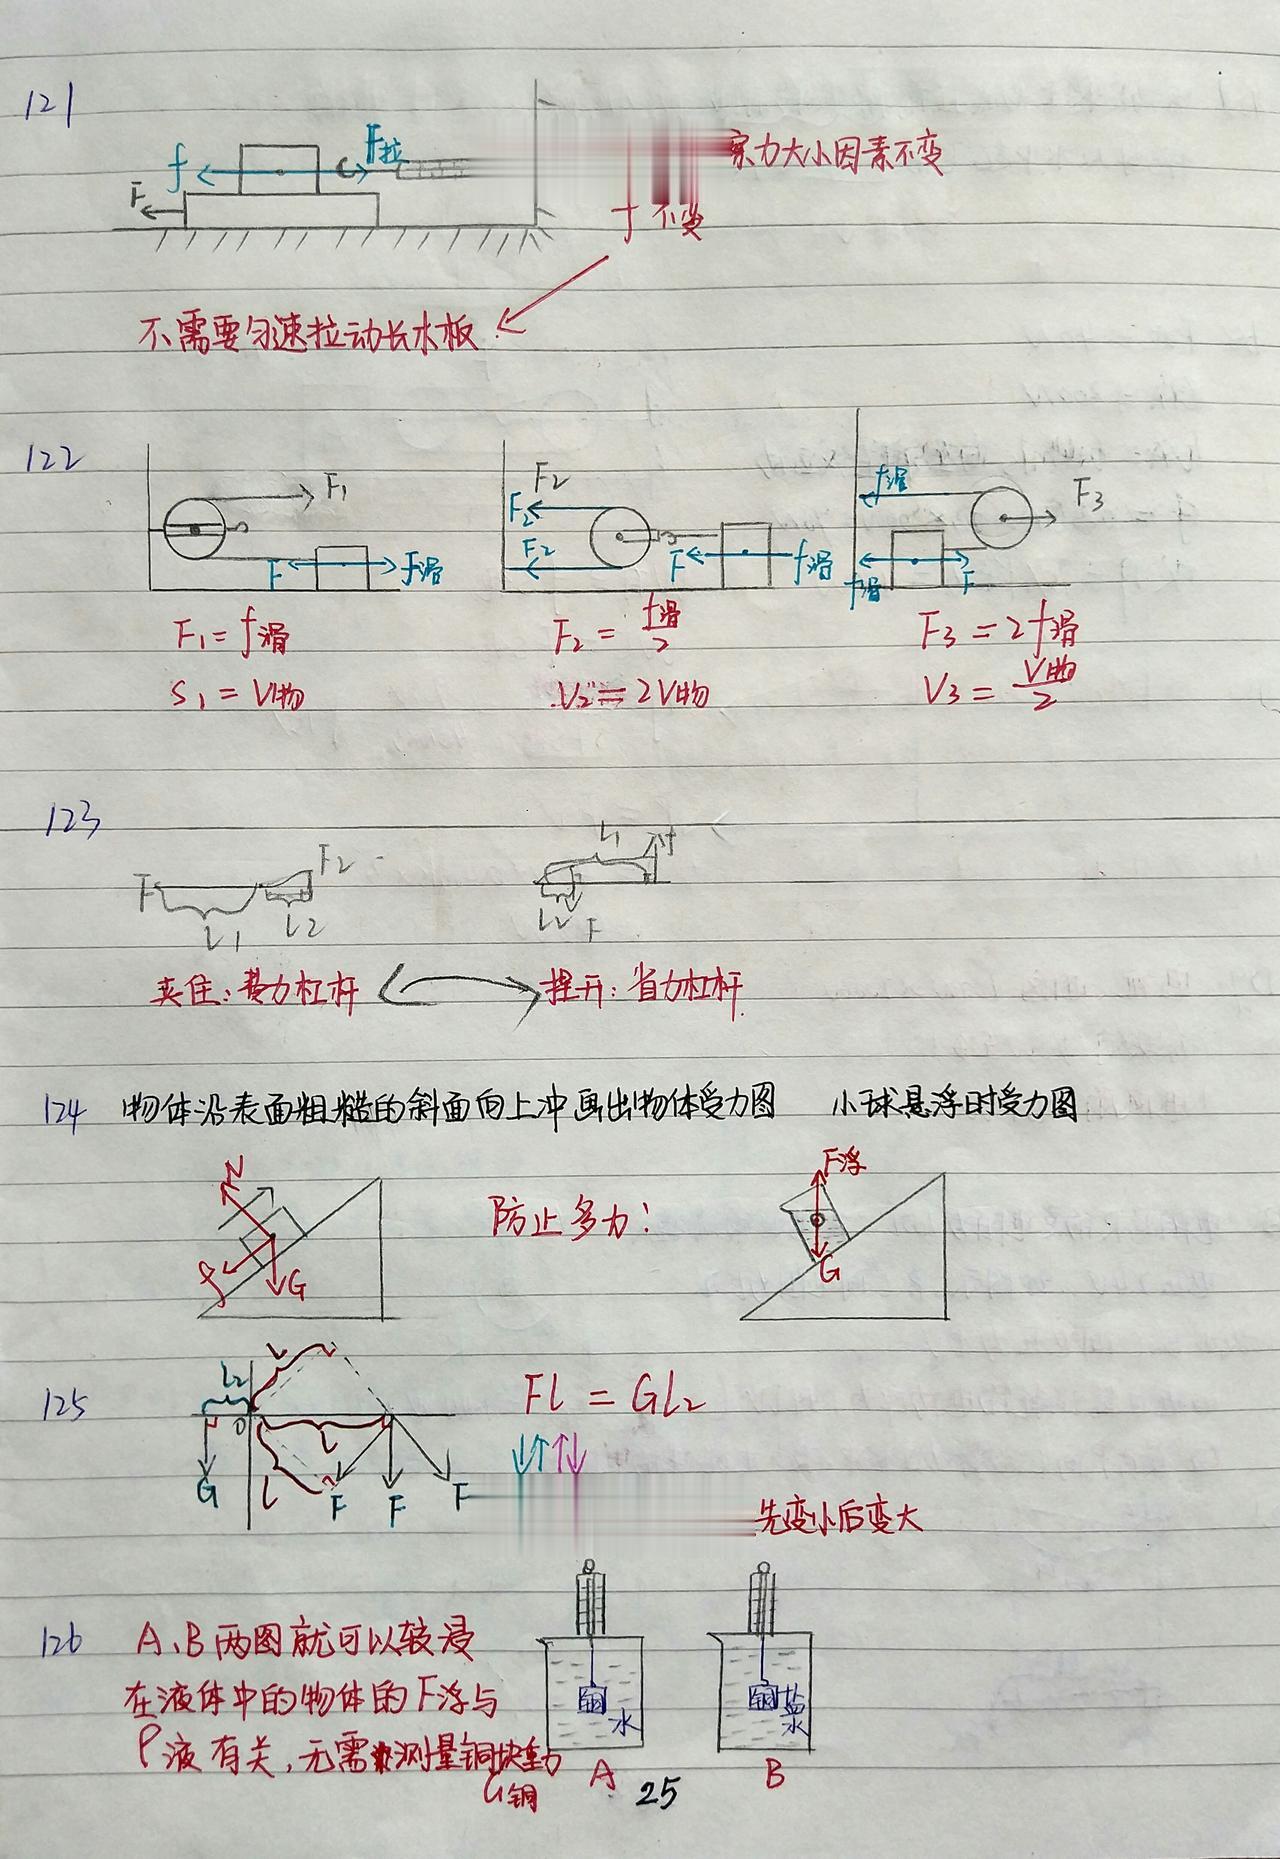 121
f F拉
F
力大小因素不变
f 不变
不需要匀速拉动长木板
122
F₁ F f滑
F₂ F₂ F₂ F f滑
f滑 F₃ f滑 F
F₁=f滑 F₂=f滑/2 F₃=2f滑
S₁=V物 V₂=2V物 V₃=V物/2
123
F L₁ L₂ F₂
L₁ f L₂ F
夹住:费力杠杆 提开:省力杠杆
124 物体沿表面粗糙的斜面向上冲画出物体受力图 小球悬浮时受力图
N f G
防止多力:
F浮 G
125
L₂ L O L L G F F F
FL=GL₂
↓↑ ↑↓
先变小后变大
126 A、B两图就可以较浸
在液体中的物体的F浮与
ρ液有关,无需测量铜块
G铜
铜 水 A
铜 盐水 B
25